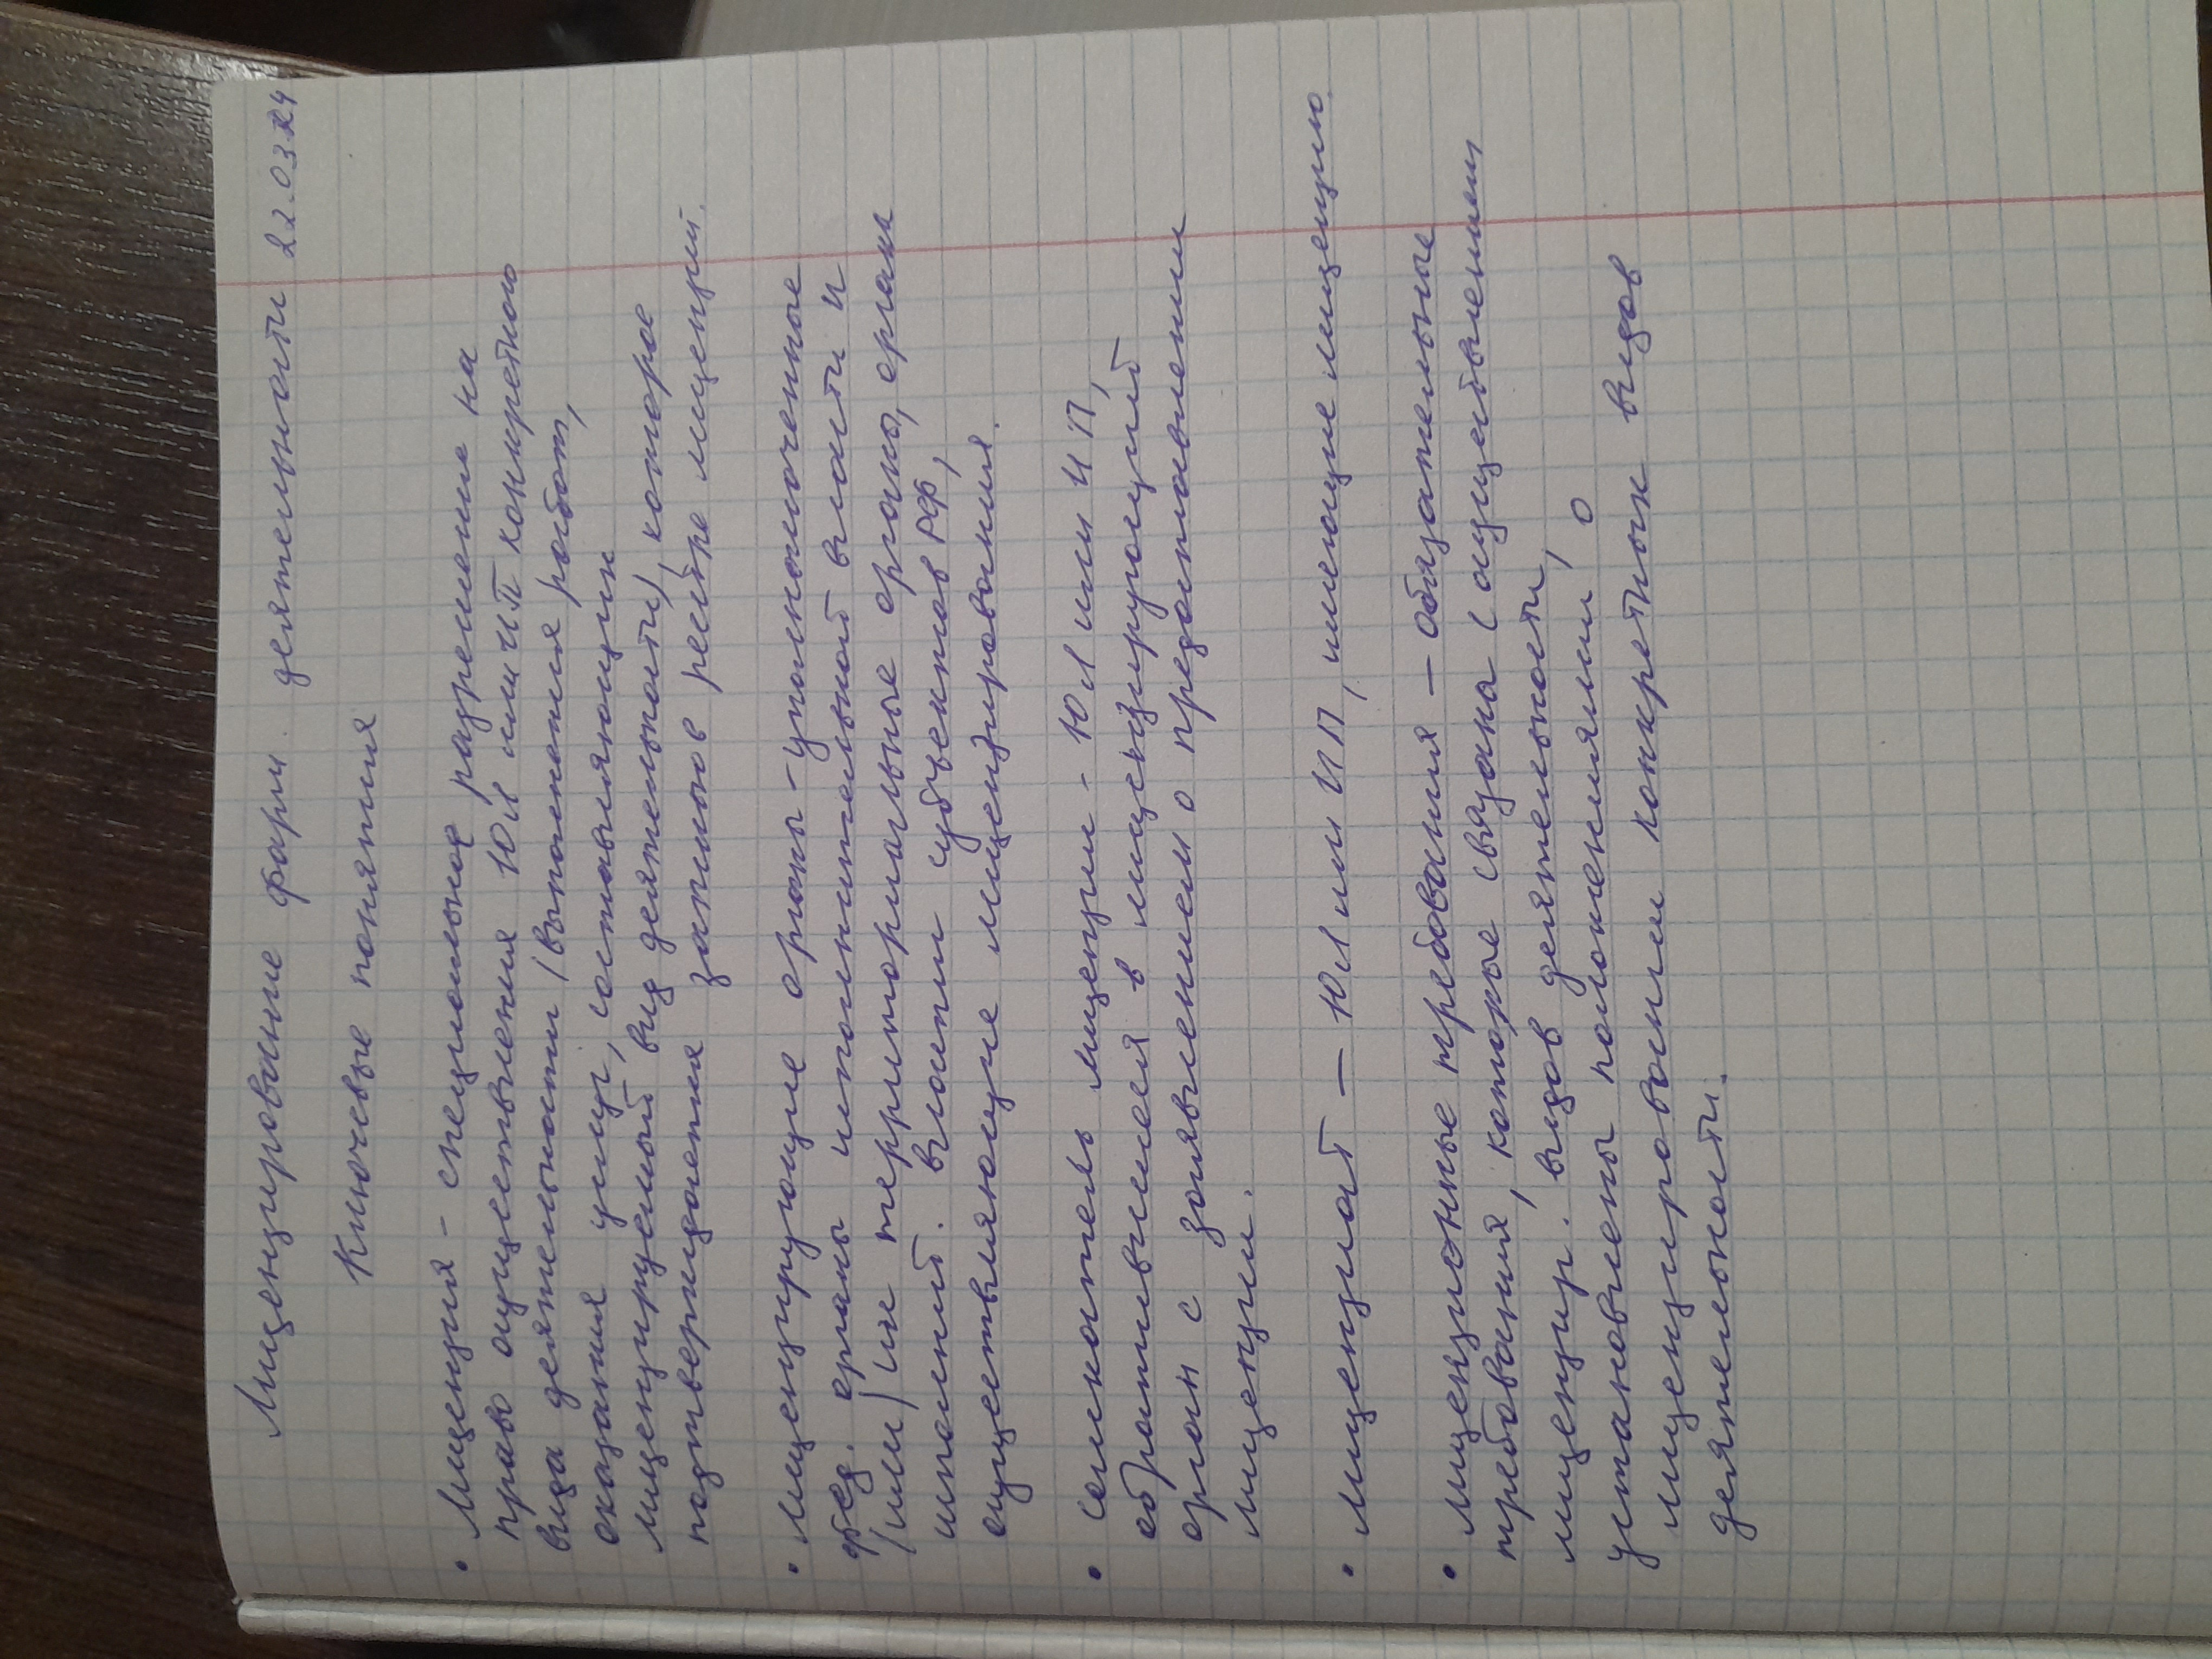 Лицензирование фарм. деятельности 22.03.24
Ключевые понятия
• Лицензия - специальное разрешение на
право осуществления ЮЛ или ИП конкретного
вида деятельности (выполнения работ,
оказания услуг, составляющих
лицензируемый вид деятельности), которое
подтверждается записью в реестре лицензий.
• Лицензирующие органы - уполномоченные
фед. органы исполнительной власти и
(или) их территориальные органы, органы
исполнит. власти субъектов РФ,
осуществляющие лицензирования.
• соискатель лицензии - ЮЛ или ИП,
обратившиеся в лицензирующий
орган с заявлением о предоставлении
лицензии.
• лицензиат — ЮЛ или ИП, имеющие лицензию.
• лицензионные требования — обязательные
требования, которые связаны с осуществлением
лицензир. видов деятельности,
установлены положениями о
лицензировании конкретных видов
деятельности.